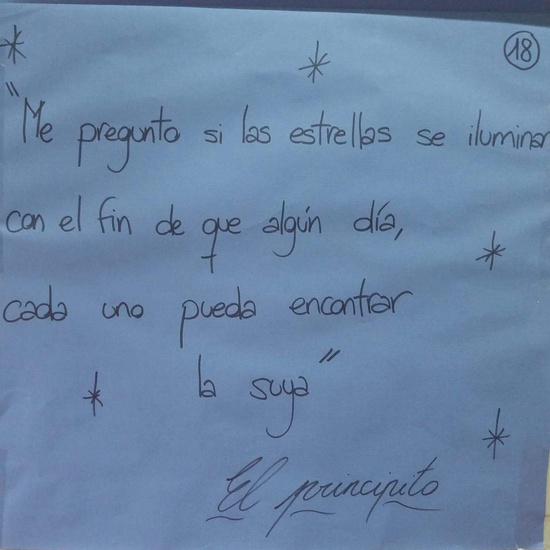 18
"Me pregunto si las estrellas se iluminan
con el fin de que algún día,
cada uno pueda encontrar
la suya"
El principito